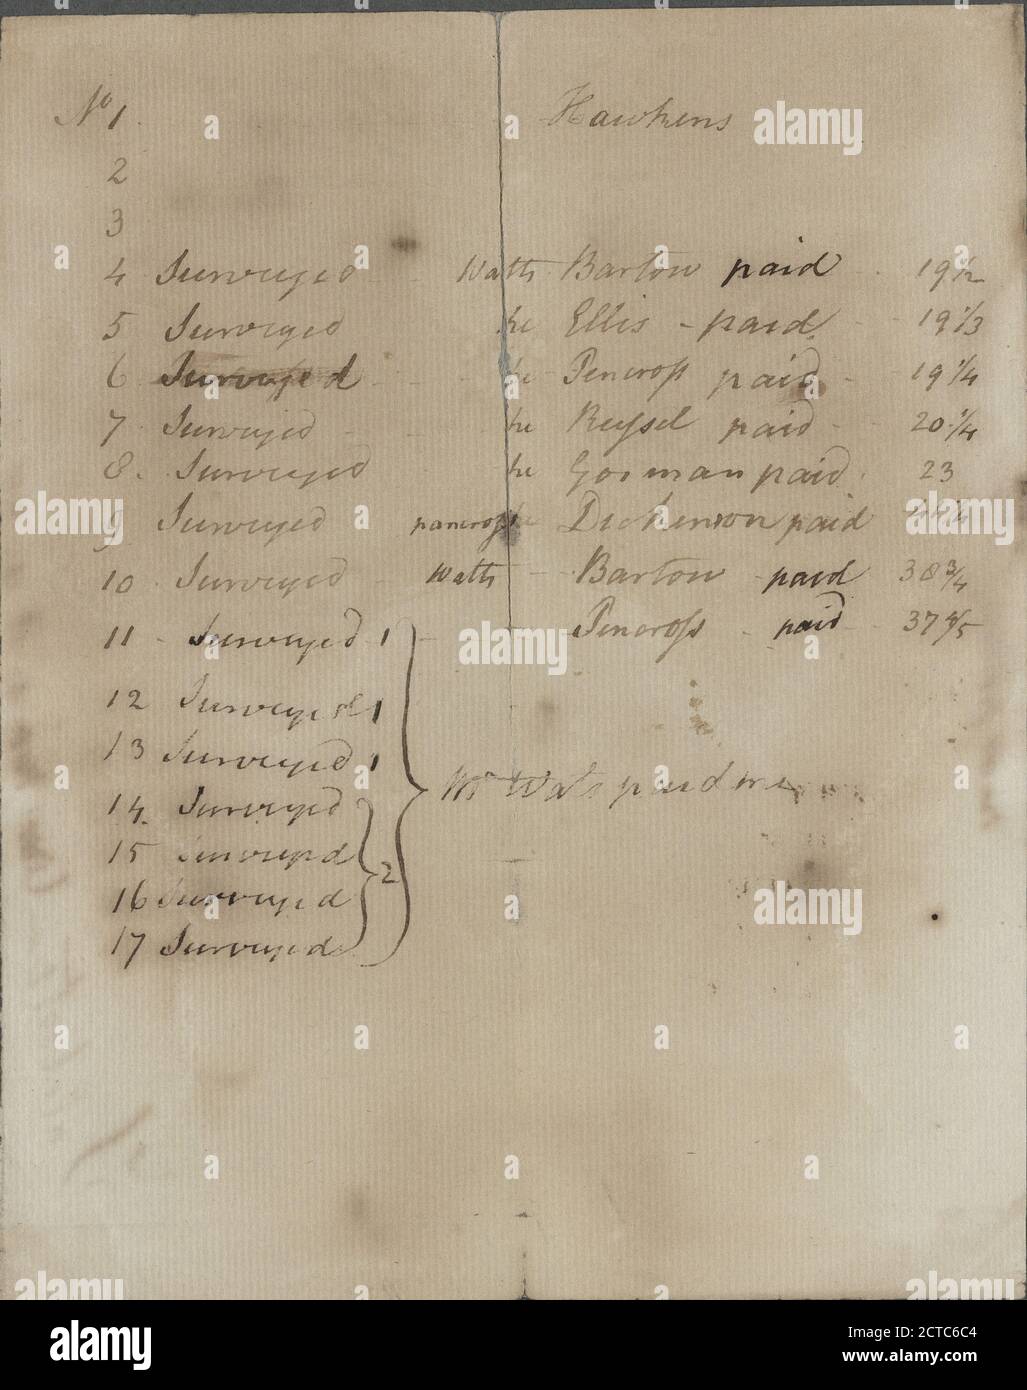 No 1 Hawkens
2
3
4 Surveyed Watts Barton paid 19 1/2
5 Surveyed he Ellis - paid 19 1/3
6 Surveyed he Pencross paid 19 1/4
7 Surveyed he Russel paid 20 1/4
8. Surveyed he Gorman paid 23
9 Surveyed pancross he Dickenson paid
10 Surveyed Watts Barton paid 38 3/4
11 Surveyed 1 Pencross paid 37 4/5
12 Surveyed 1
13 Surveyed 1
Mr Wats paid me
14. Surveyed
15 Surveyed
2
16 Surveyed
17 Surveyed
alamy
Image ID: 2CTC6C4
www.alamy.com